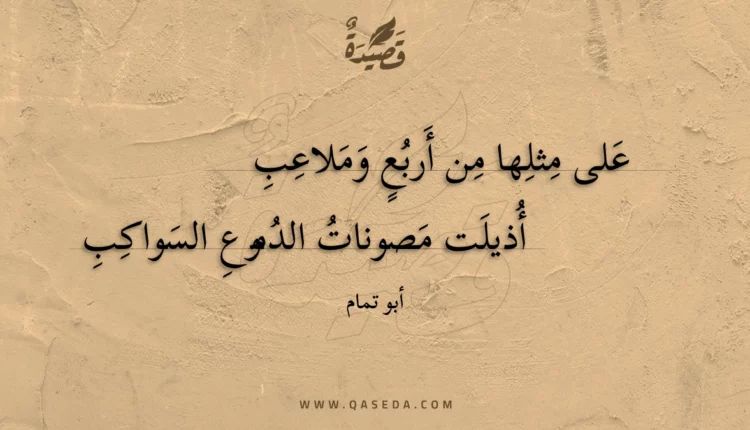 قَصِيْدَةٌ
عَلى مِثلِها مِن أَربُعٍ وَمَلاعِبِ
أُذيلَت مَصوناتُ الدُموعِ السَواكِبِ
أبو تمام
WWW.QASEDA.COM